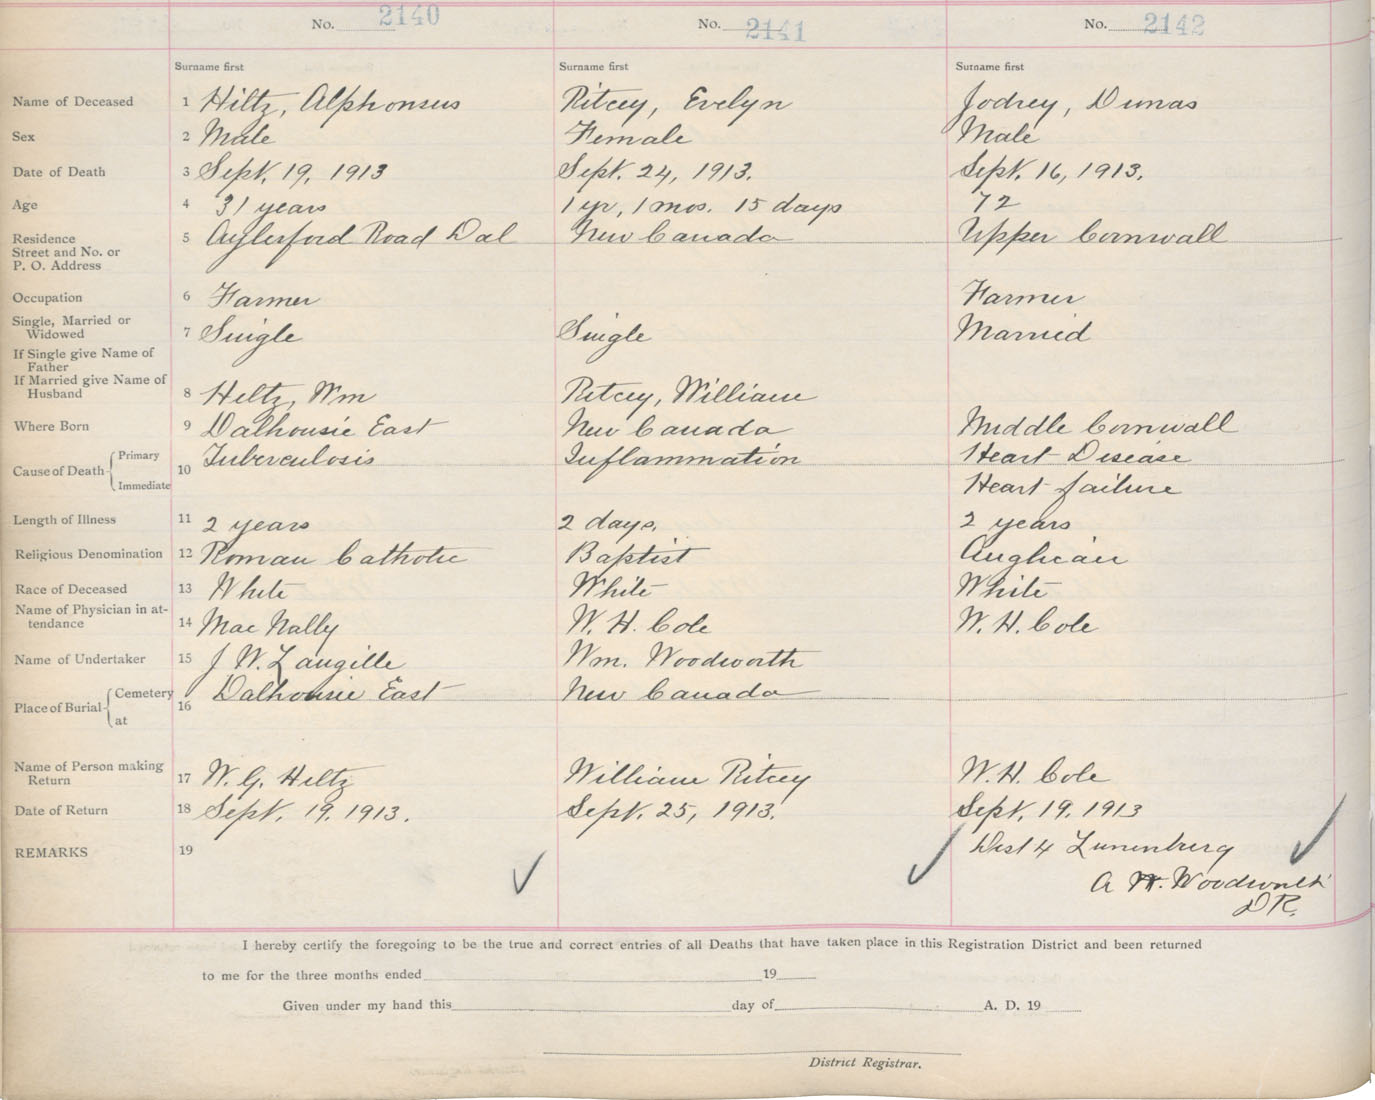 No. 2140 No. 2141 No. 2142
Surname first Surname first Surname first
Name of Deceased 1 Hiltz, Alphonsus Ritcey, Evelyn Jodrey, Dumas
Sex 2 Male Female Male
Date of Death 3 Sept. 19, 1913 Sept. 24, 1913. Sept. 16, 1913.
Age 4 31 years 1 yr, 1 mos. 15 days 72
Residence 5 Aylesford Road Dal New Canada Upper Cornwall
Street and No. or
P. O. Address
Occupation 6 Farmer Farmer
Single, Married or
Widowed 7 Single Single Married
If Single give Name of
Father
If Married give Name of
Husband 8 Hiltz, Wm Ritcey, William
Where Born 9 Dalhousie East New Canada Middle Cornwall
Cause of Death Primary 10 Tuberculosis Inflammation Heart Disease
Immediate Heart failure
Length of Illness 11 2 years 2 days, 2 years
Religious Denomination 12 Roman Catholic Baptist Anglican
Race of Deceased 13 White White White
Name of Physician in at-
tendance 14 MacNally W. H. Cole W. H. Cole
Name of Undertaker 15 J W. Langille Wm. Woodworth
Place of Burial Cemetery 16 Dalhousie East New Canada
at
Name of Person making
Return 17 W. G. Hiltz William Ritcey W. H. Cole
Date of Return 18 Sept. 19, 1913. Sept. 25, 1913. Sept. 19, 1913
REMARKS 19 Dist 4 Lunenburg
A W. Woodworth
DR.
I hereby certify the foregoing to be the true and correct entries of all Deaths that have taken place in this Registration District and been returned
to me for the three months ended 19
Given under my hand this day of A. D. 19
District Registrar.